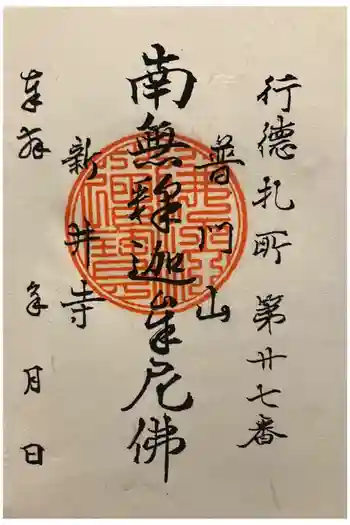 行徳札所第廿七番
普門山
南無釋迦牟尼佛
新井寺
奉拝
年月日